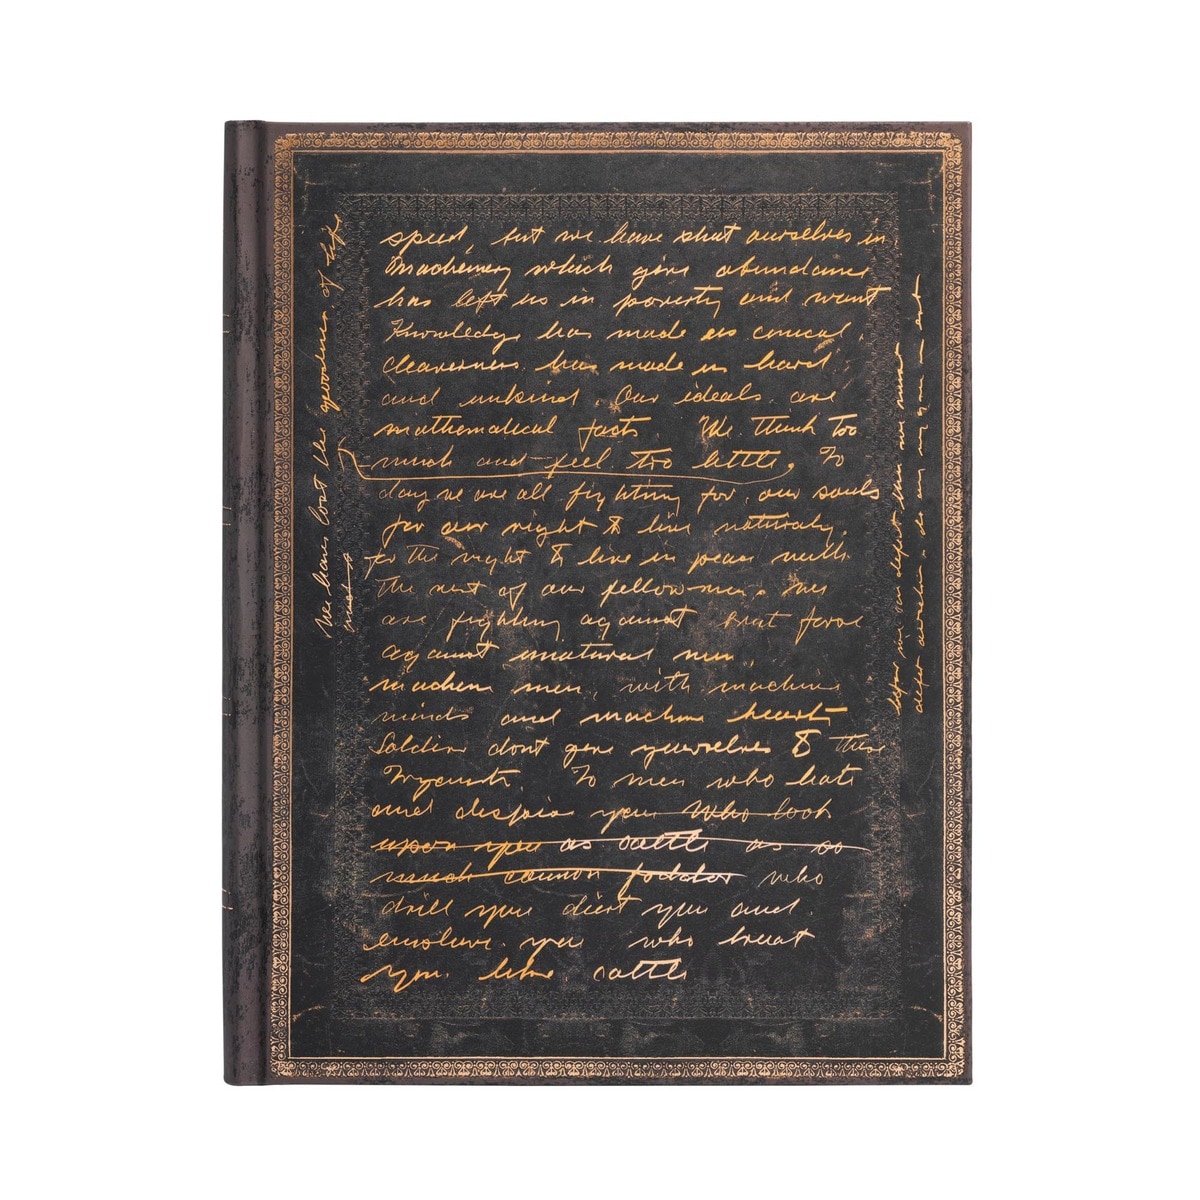 speed, but we have shut ourselves in
Machenery which givs abundance
has left us in poverty and want
Knowledge has made us cinical
cleaverness has made us hard
and unkind. Our ideals are
mathematical facts. We think too
much and feel too little. To
day we are all fighting for our souls
for our right to live naturaly.
for the right to live in peace with
the rest of our fellow men. We
are fighting against brut force
against unatural men.
machine men, with machine
minds and machine hearts
Soldiers dont give yourselves to these
Tryants. To men who hate
and despise you who look
upon you as cattle as so
much cannon fodder who
drill you diert you and
enslave you who treat
you like cattle
We have lost the goodness of life